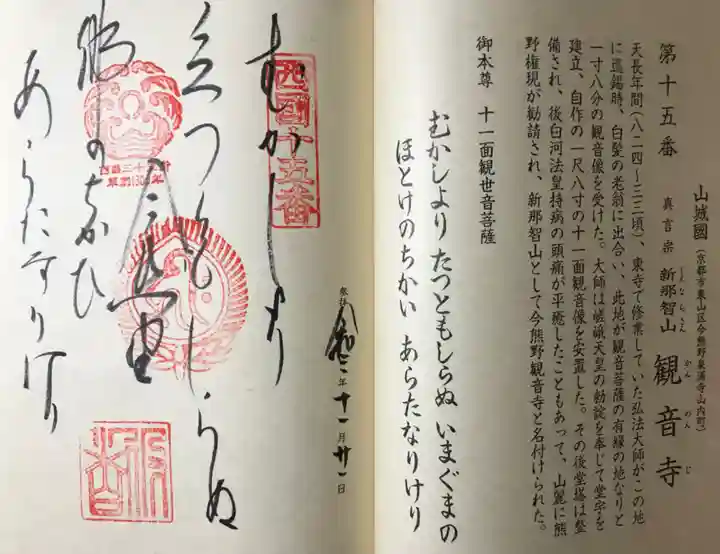 山城國(京都市東山区今熊野泉涌寺山内町)
第十五番 真言宗 新那智山 観音寺
しんなちさん かんのんじ
天長年間(八二四〜三三頃)、東寺で修業していた弘法大師がこの地
に巡錫時、白髪の老翁に出合い、此地が観音菩薩の有縁の地なりと
一寸八分の観音像を受けた。大師は嵯峨天皇の勅諚を奉じて堂宇を
建立、自作の一尺八寸の十一面観音像を安置した。その後堂塔は整
備され、後白河法皇持病の頭痛が平癒したこともあって、山麓に熊
野権現が勧請され、新那智山として今熊野観音寺と名付けられた。
御本尊 十一面観世音菩薩
むかしより たつともしらぬ いまぐまの
ほとけのちかい あらたなりけり
西國十五番
令和二年十一月廿一日
むかしより
立つともしらぬ
今熊野
佛のちかひ
あらたなりけり
西国三十三所
草創1300年